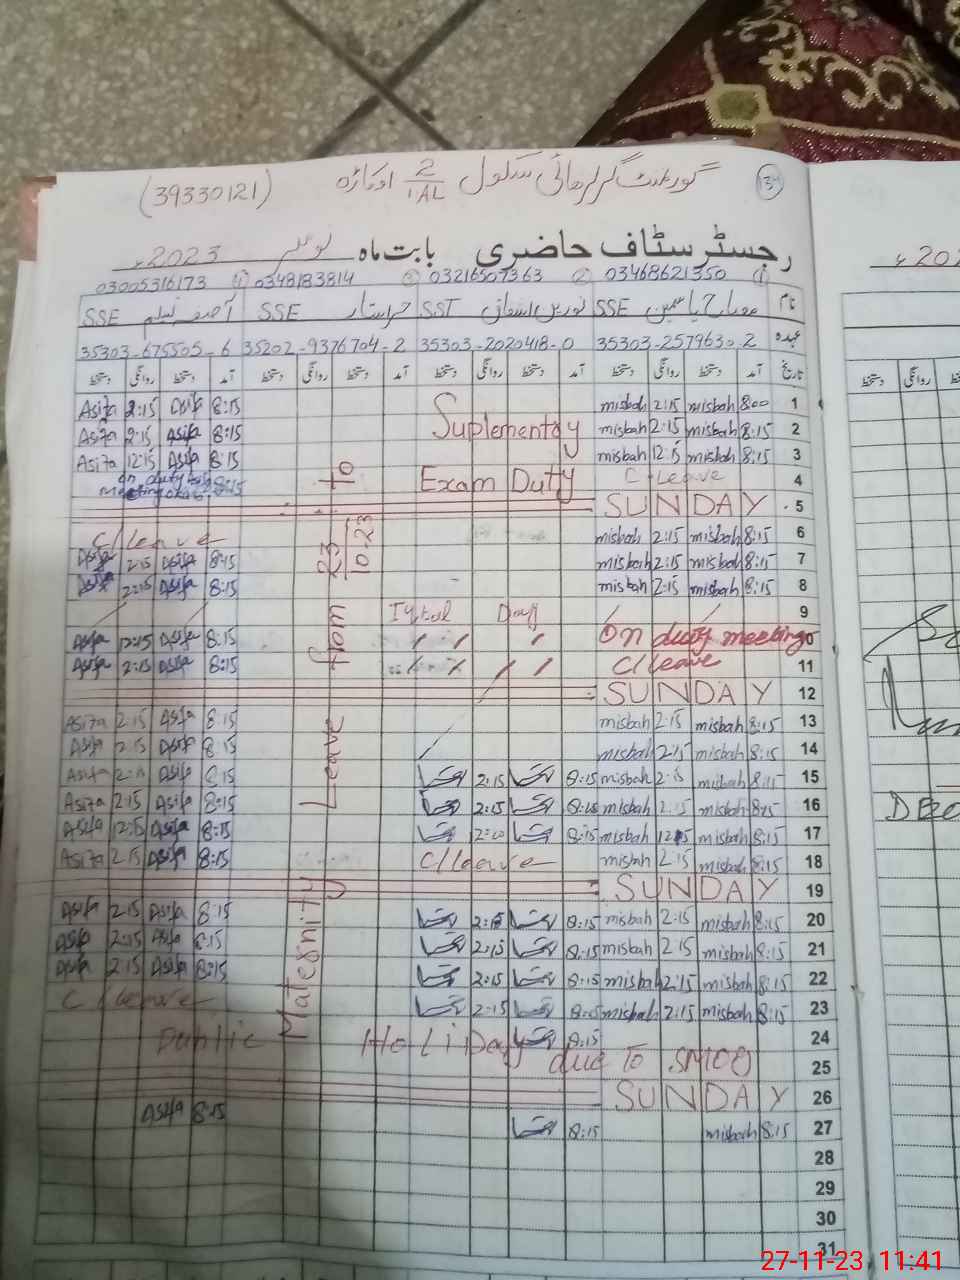 (39330121) گورنمنٹ گرلز ہائی سکول 2/1AL اوکاڑہ
رجسٹر سٹاف حاضری بابت ماہ نومبر 2023ء
① 03468621350 ② 03216507363 ③ 03483183814 ④ 03005316173
نام مصباح یاسمین SSE نورین اسحاق SST SSE آصفہ SSE
عہدہ 35303-2579630-2 35303-2020418-0 35202-9376704-2 35303-675505-6
تاریخ آمد دستخط روانگی دستخط آمد دستخط روانگی دستخط آمد دستخط روانگی دستخط آمد دستخط روانگی دستخط
Asifa 2:15 Asifa 8:15 misbah 2:15 misbah 8:00 1
Asifa 2:15 Asifa 8:15 Suplementay misbah 2:15 misbah 8:15 2
Asifa 12:15 Asifa 8:15 misbah 12:15 misbah 8:15 3
on duty meeting 8:15 Exam Duty C-Leave 4
SUNDAY 5
C/leave misbah 2:15 misbah 8:15 6
Asifa 2:15 Asifa 8:15 misbah 2:15 misbah 8:15 7
Asifa 2:15 Asifa 8:15 misbah 2:15 misbah 8:15 8
Iqbal Day 9
Asifa 12:15 Asifa 8:15 On duty meeting 10
Asifa 2:15 Asifa 8:15 C/leave 11
SUNDAY 12
Asifa 2:15 Asifa 8:15 misbah 2:15 misbah 8:15 13
Asifa 2:15 Asifa 8:15 misbah 2:15 misbah 8:15 14
Asifa 2:15 Asifa 8:15 2:15 8:15 misbah 2:15 misbah 8:15 15
Asifa 2:15 Asifa 8:15 2:15 8:15 misbah 2:15 misbah 8:15 16
Asifa 12:15 Asifa 8:15 8:15 misbah 12:15 misbah 8:15 17
Asifa 2:15 Asifa 8:15 C/leave misbah 2:15 misbah 8:15 18
SUNDAY 19
Asifa 2:15 Asifa 8:15 2:15 8:15 misbah 2:15 misbah 8:15 20
Asifa 2:15 Asifa 8:15 2:15 8:15 misbah 2:15 misbah 8:15 21
Asifa 2:15 Asifa 8:15 2:15 8:15 misbah 2:15 misbah 8:15 22
C/leave 2:15 8:15 misbah 2:15 misbah 8:15 23
Public HoliDay 8:15 24
due To SMOG 25
SUNDAY 26
Asifa 8:15 8:15 misbah 8:15 27
28
29
30
31
Maternity Leave from 23/10.23 to
27-11-23 11:41